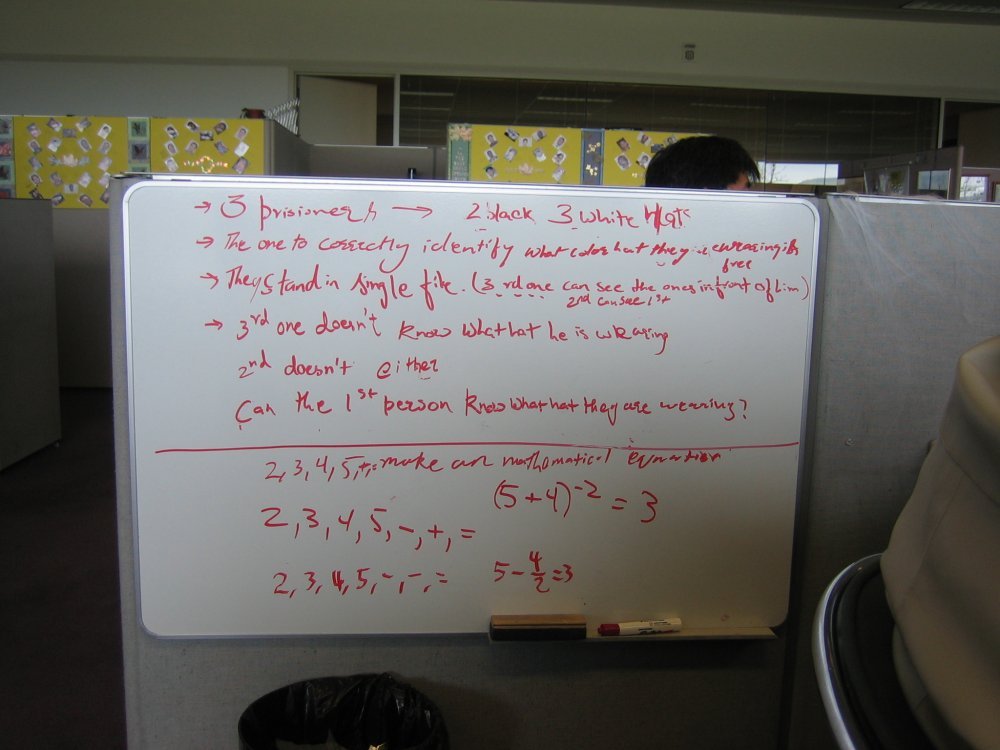 → 3 prisioners → 2 black 3 white Hats
→ The one to correctly identify what color hat they is wearing is free
→ They stand in single file. (3rd one can see the ones in front of him)
2nd can see 1st
→ 3rd one doesn't know what hat he is wearing
2nd doesn't either
Can the 1st person know what hat they are wearing?
2, 3, 4, 5, +, = make an mathematical equation
2, 3, 4, 5, -, +, =
(5+4)^-2 = 3
2, 3, 4, 5, -, -, =
5 - 4/2 = 3